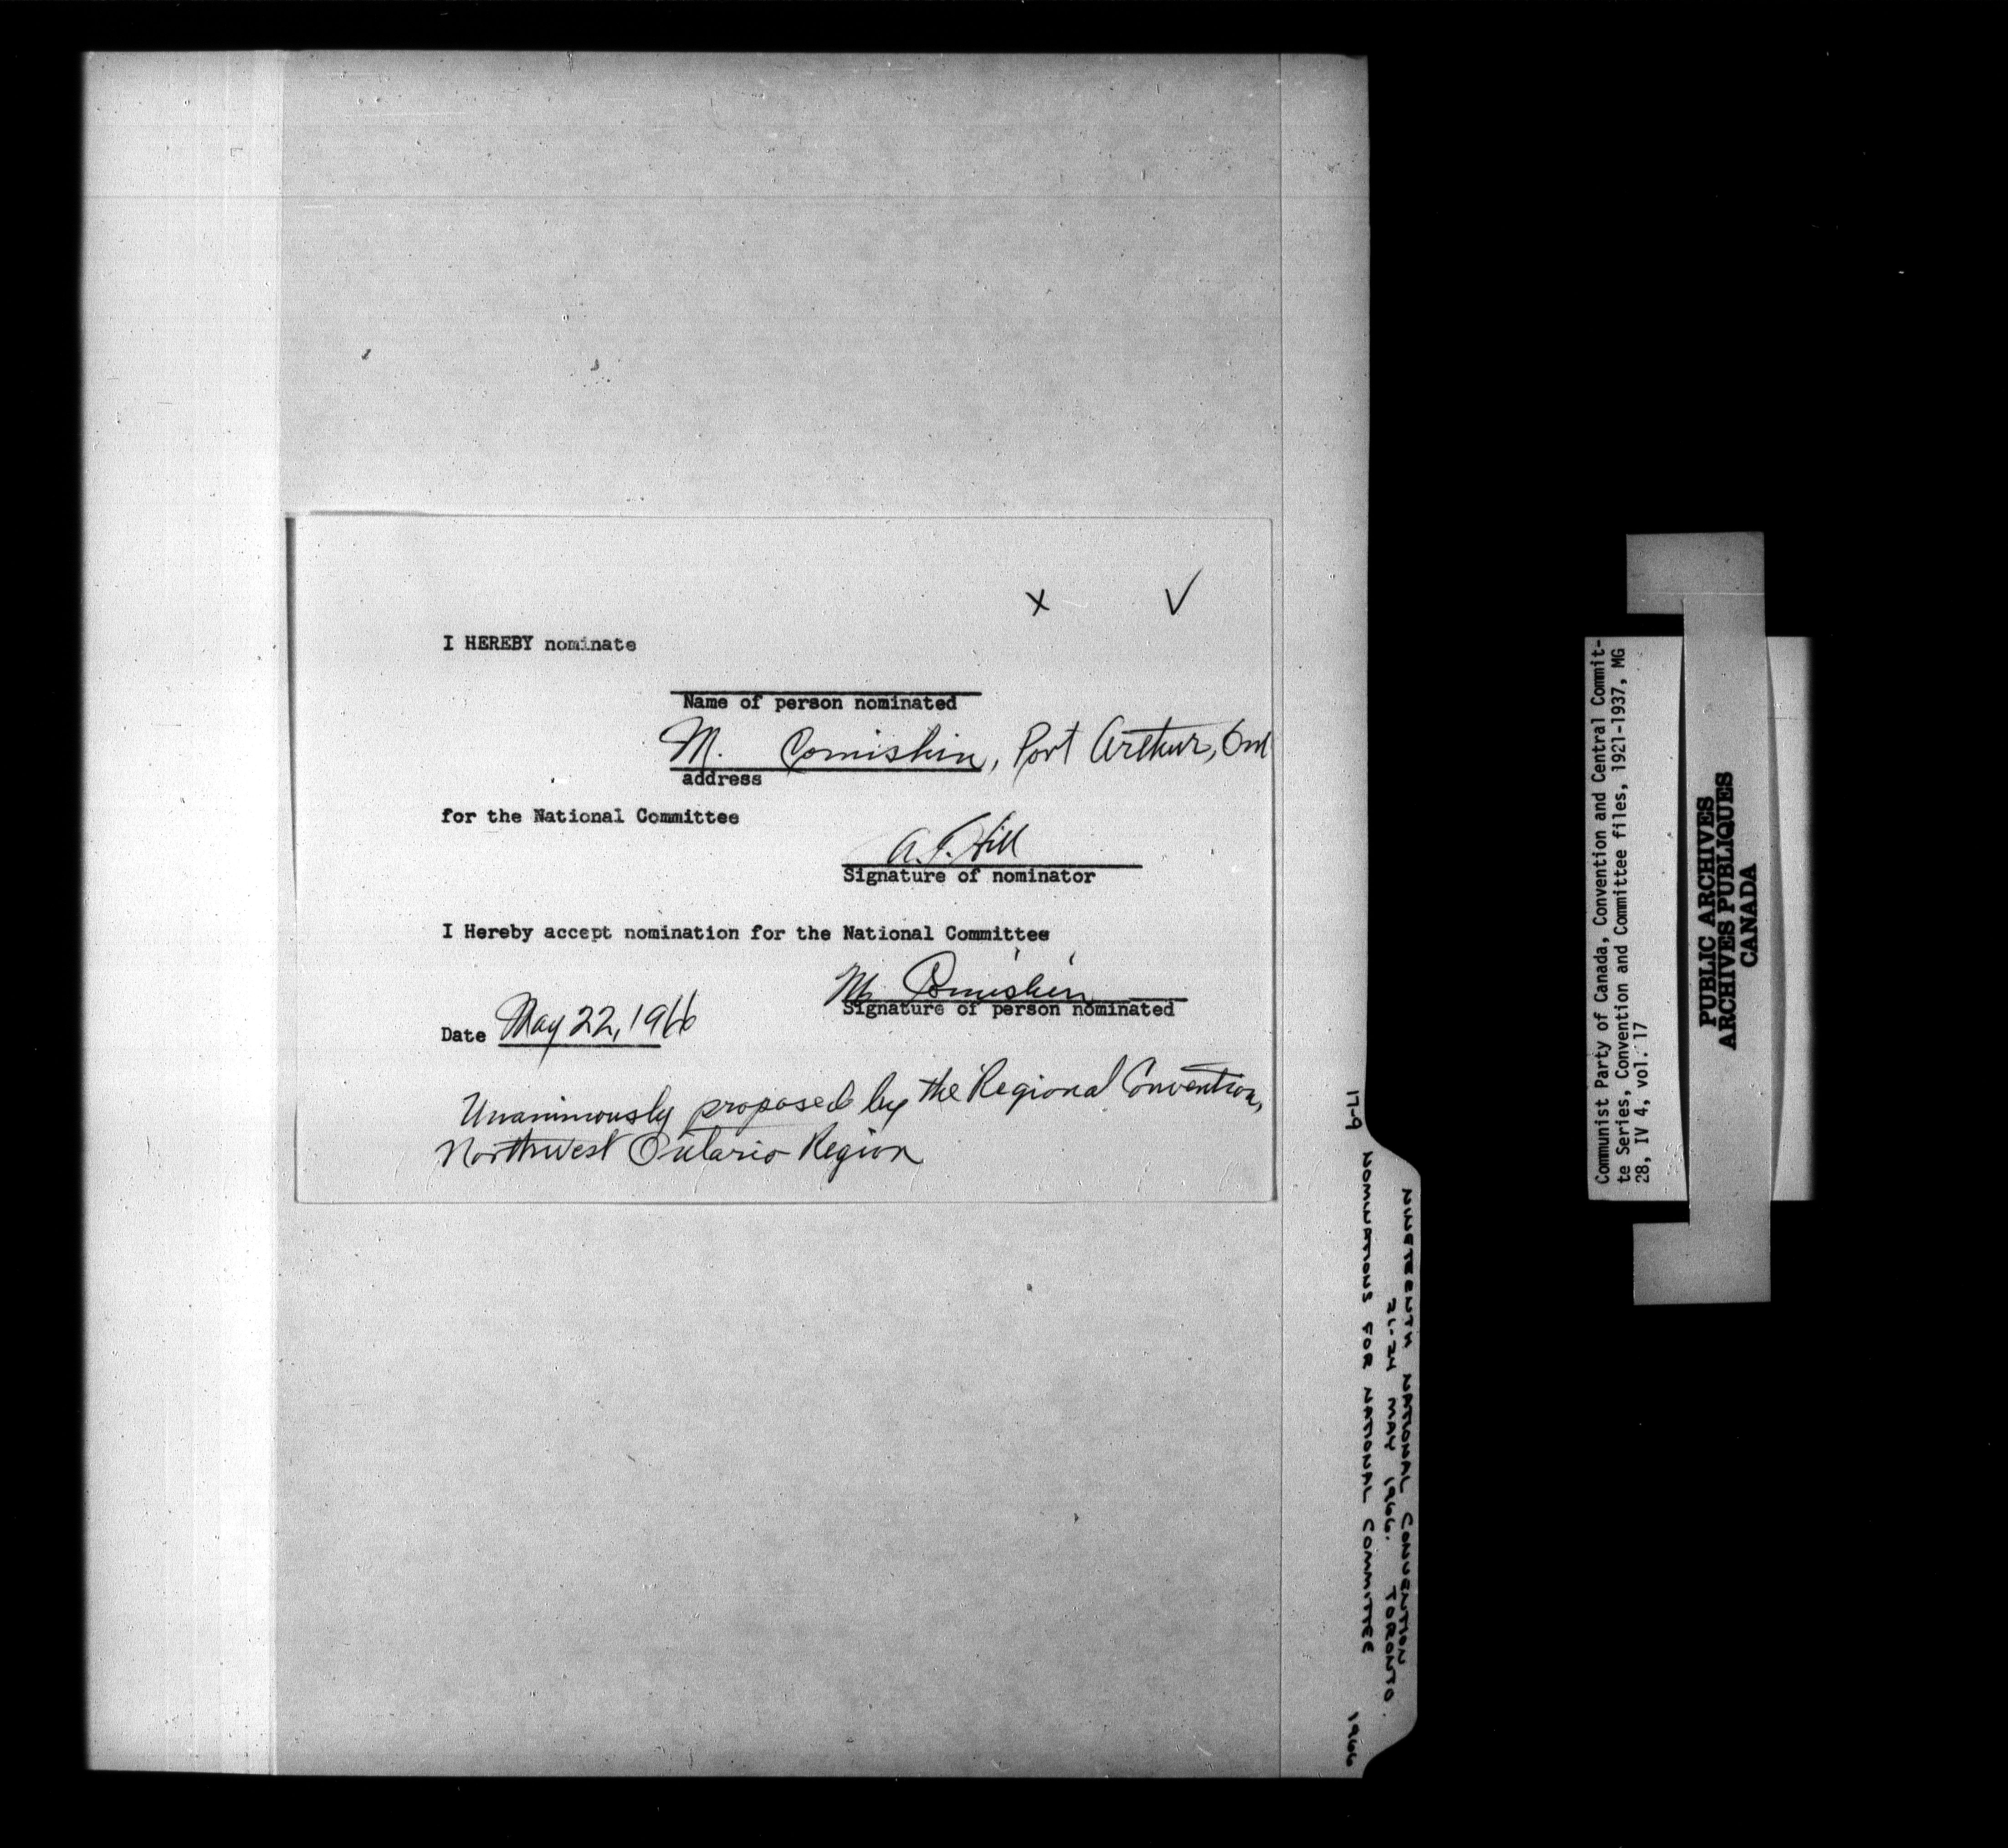 x √
I HEREBY nominate
Name of person nominated
M. Comishin, Port Arthur, Ont
address
for the National Committee
A.T. Hill
Signature of nominator
I Hereby accept nomination for the National Committee
M. Comishin
Signature of person nominated
Date May 22, 1966
Unanimously proposed by the Regional Convention,
Northwest Ontario Region
17-9
NOMINATIONS FOR NATIONAL COMMITTEE
1966
NINETEENTH NATIONAL CONVENTION
21-24 MAY 1966. TORONTO.
Communist Party of Canada, Convention and Central Commit-
te Series, Convention and Committee files, 1921-1937, MG
28, IV 4, vol. 17
PUBLIC ARCHIVES
ARCHIVES PUBLIQUES
CANADA